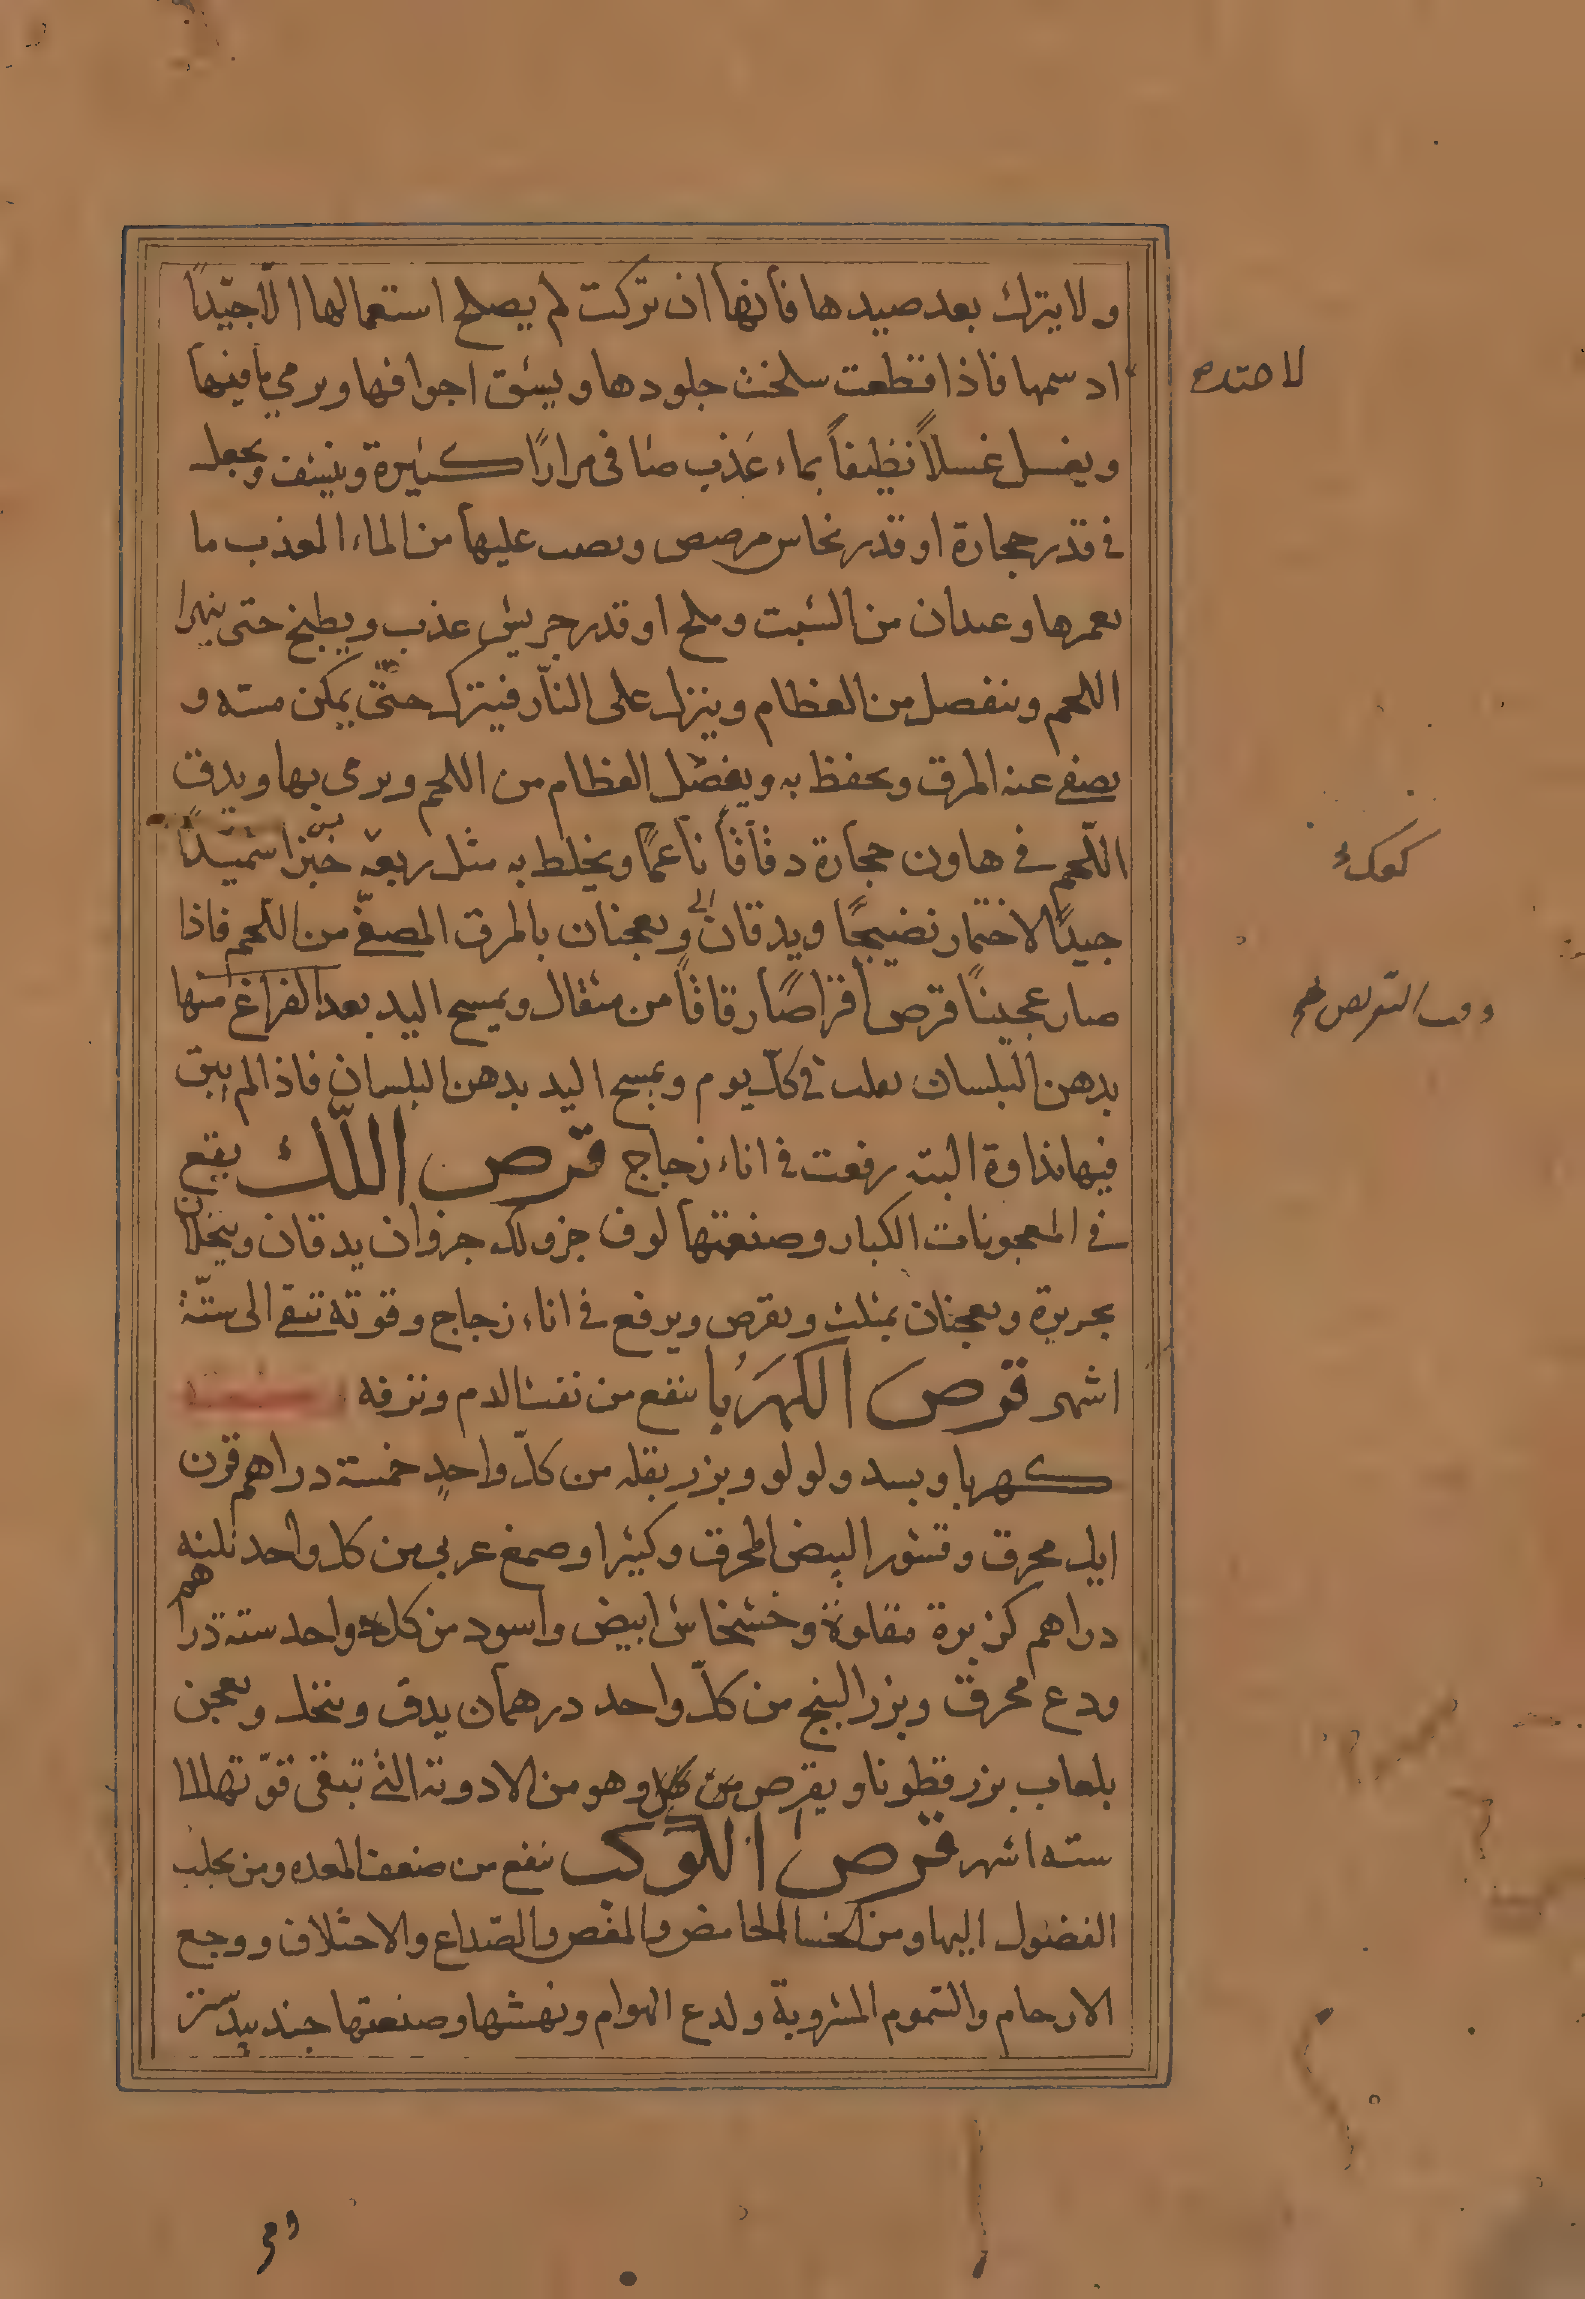 ولا يترك بعد صيدها فانها ان تركت لم يصلح استعمالها الا جيدًا
ادسمها فاذا قطعت سلخت جلودها ويشق اجوافها ويرمي ما فيها
لا حتده
ويغسل غسلاً نظيفاً بماء عذب صافى مرارًا كثيرة وينشف ويجعل
فى قدر حجارة او قدر نحاس مرصص ويصب عليها من الماء العذب ما
يعمرها وعيدان من الشبت وملح او قدر جريش عذب ويطبخ حتى ينهرا
اللحم وينفصل من العظام وينزل على النّار فيترك حتّى يمكن مسّه و
يصفى عنه المرق ويحفظ به ويفصّل العظام من اللحم ويرمى بها ويدق
اللّحم فى هاون حجارة دقاقاً ناعمًا ويخلط به مثل ربعه خبزا سميدًا
كعك
جيدًا لاختمار نضيجًا ويدقان ويعجنان بالمرق المصفّى من اللحم فاذا
صار عجينًا قرص اقراصًا رقاقاً من مثقال ويمسح اليد بعد الفراغ منها
وقت التقريص
بدهن البلسان يقلب فى كلّ يوم ويمسح اليد بدهن البلسان فاذا لم يبق
فيها نداوة البته رفعت فى اناء زجاج قرص اللّك يقع
فى المعجونات الكبار وصنعتها لوف جزو لك جزوان يدقان وينخلان
بحريرة ويعجنان بمثلث ويقرص ويرفع فى اناء زجاج وقوته تبقى الى ستّة
اشهر قرص الكهربا ينفع من نفث الدم ونزفه
كهربا وبسد ولولو وبزر بقله من كلّ واحدٍ خمسة دراهم قرن
ايل محرق وقشور البيض المحرق وكثيرا وصمغ عربي من كل واحد ثلثه
دراهم كزبرة مقلوة وخشخاش ابيض واسود من كل واحد ستة دراهم
ودع محرق وبزر البنج من كلّ واحد درهمان يدق وينخل ويعجن
بلعاب بزر قطونا ويقرص من كل وهو من الادوية التي تبقى قوّتها الى
سته اشهر قرص الكوكب ينفع من ضعف المعده ومن تحلب
الفضول اليها ومن الجشا الحامض والمغص والصّداع والاختلاف ووجع
الارحام والسّموم المشروبة ولدع الهوام ونهشها وصنعتها جندبيدستر